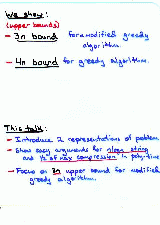 We show:
(upper bounds)
- 3n bound for a modified greedy
algorithm.
- 4n bound for greedy algorithm.
This talk:
- Introduce 2 representations of problem
- Show easy arguments for nlogn string
and ½ of max compression in poly-time
- Focus on 3n upper bound for modified
greedy algorithm.